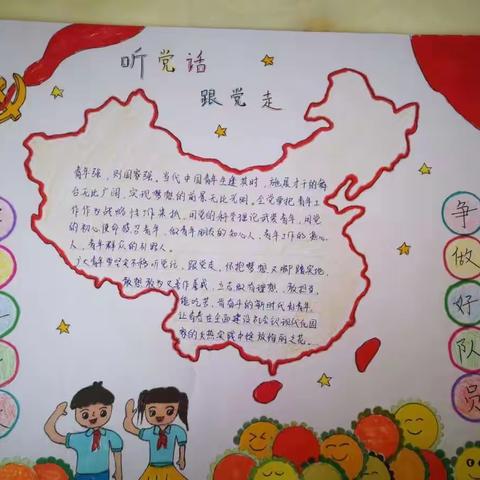 听党话
跟党走
青年强,则国家强。当代中国青年生逢其时,施展才干的舞
台无比广阔,实现梦想的前景无比光明。全党要把青年工
作作为战略性工作来抓,用党的科学理论武装青年,用党
的初心使命感召青年,做青年朋友的知心人、青年工作的热心
人、青年群众的引路人。
广大青年要坚定不移听党话、跟党走,怀抱梦想又脚踏实地,
敢想敢为又善作善成,立志做有理想、敢担当、
能吃苦、肯奋斗的新时代好青年,
让青春在全面建设社会主义现代化国
家的火热实践中绽放绚丽之花。
争
做
好
队
员